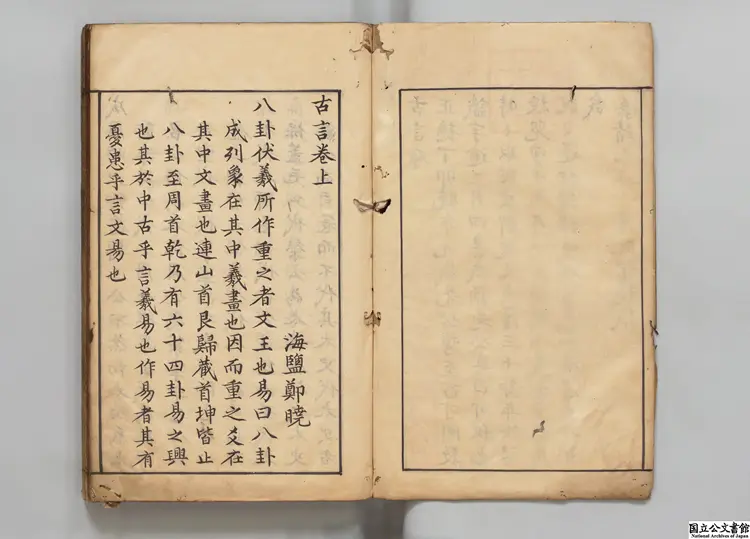 古言卷上
海鹽鄭曉
八卦伏羲所作重之者文王也易曰八卦
成列象在其中羲畫也因而重之爻在
其中文畫也連山首艮歸藏首坤皆止
八卦至周首乾乃有六十四卦易之興
也其於中古乎言羲易也作易者其有
憂患乎言文易也
国立公文書館
National Archives of Japan